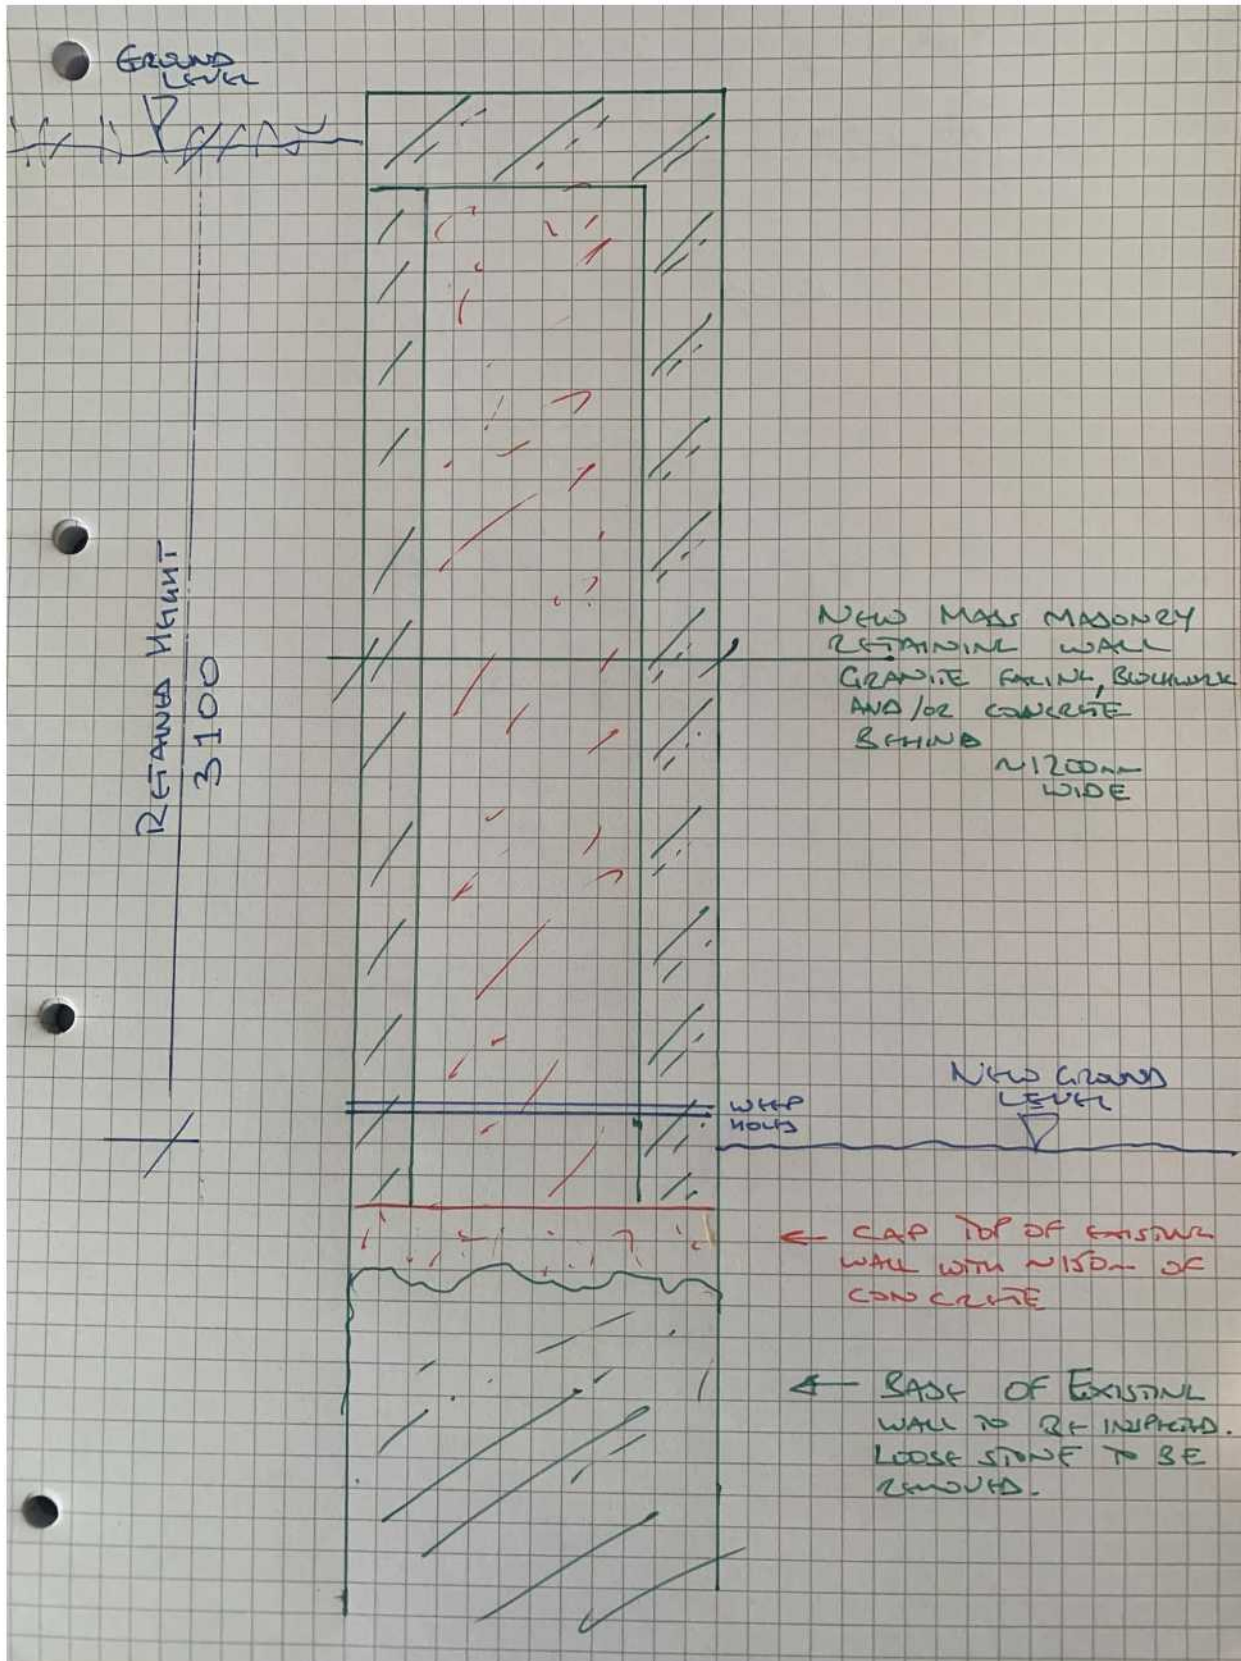 GROUND
LEVEL
RETAINED HEIGHT
3100
NEW MASS MASONRY
RETAINING WALL
GRANITE FACING, BLOCKWORK
AND/OR CONCRETE
BEHIND
~1200mm
WIDE
WEEP
HOLES
NEW GROUND
LEVEL
← CAP TOP OF EXISTING
WALL WITH ~150mm OF
CONCRETE
← BASE OF EXISTING
WALL TO BE INSPECTED.
LOOSE STONE TO BE
REMOVED.